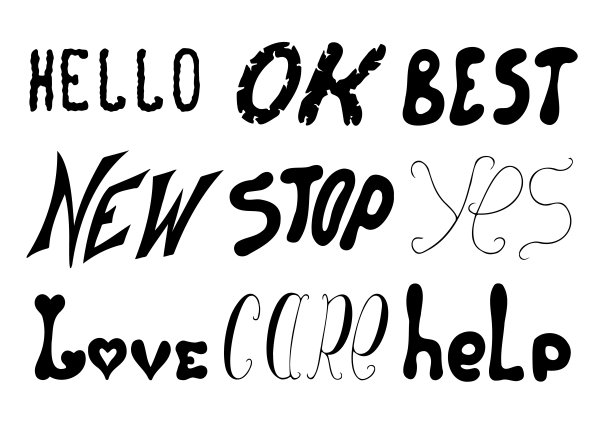 HELLO OK BEST
NEW STOP yes
LOVE CARe heLp